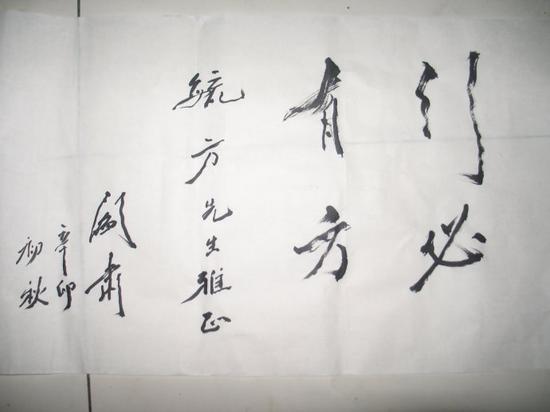 行必
有方
毓方先生雅正
顾肃
辛卯
初秋